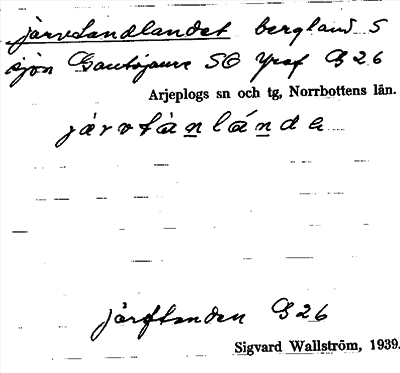 järvtandlandet bergland S
sjön Gautojaure SO Yraf B 26
Arjeplogs sn och tg, Norrbottens län.
järvtànlándɐ
järftanden B 26
Sigvard Wallström, 1939.